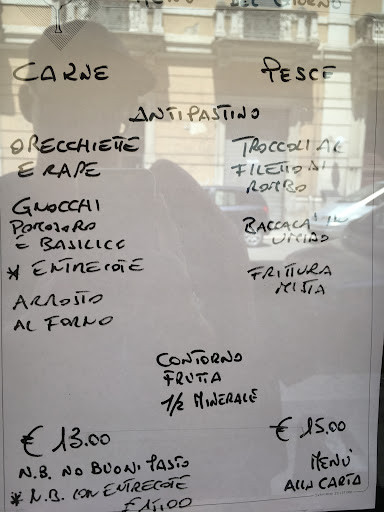 MENU DEL GIORNO
CARNE PESCE
ANTIPASTINO
ORECCHIETTE TROCCOLI AL
E RAPE FILETTO DI
ROMBO
GNOCCHI
POMODORO BACCALA' IN
E BASILICO UMIDO
* ENTRECOTE FRITTURA
MISTA
ARROSTO
AL FORNO
CONTORNO
FRUTTA
1/2 MINERALE
€ 13.00 € 15.00
N.B. NO BUONI PASTO MENÙ
* N.B. CON ENTRECOTE ALLA CARTA
€ 15,00